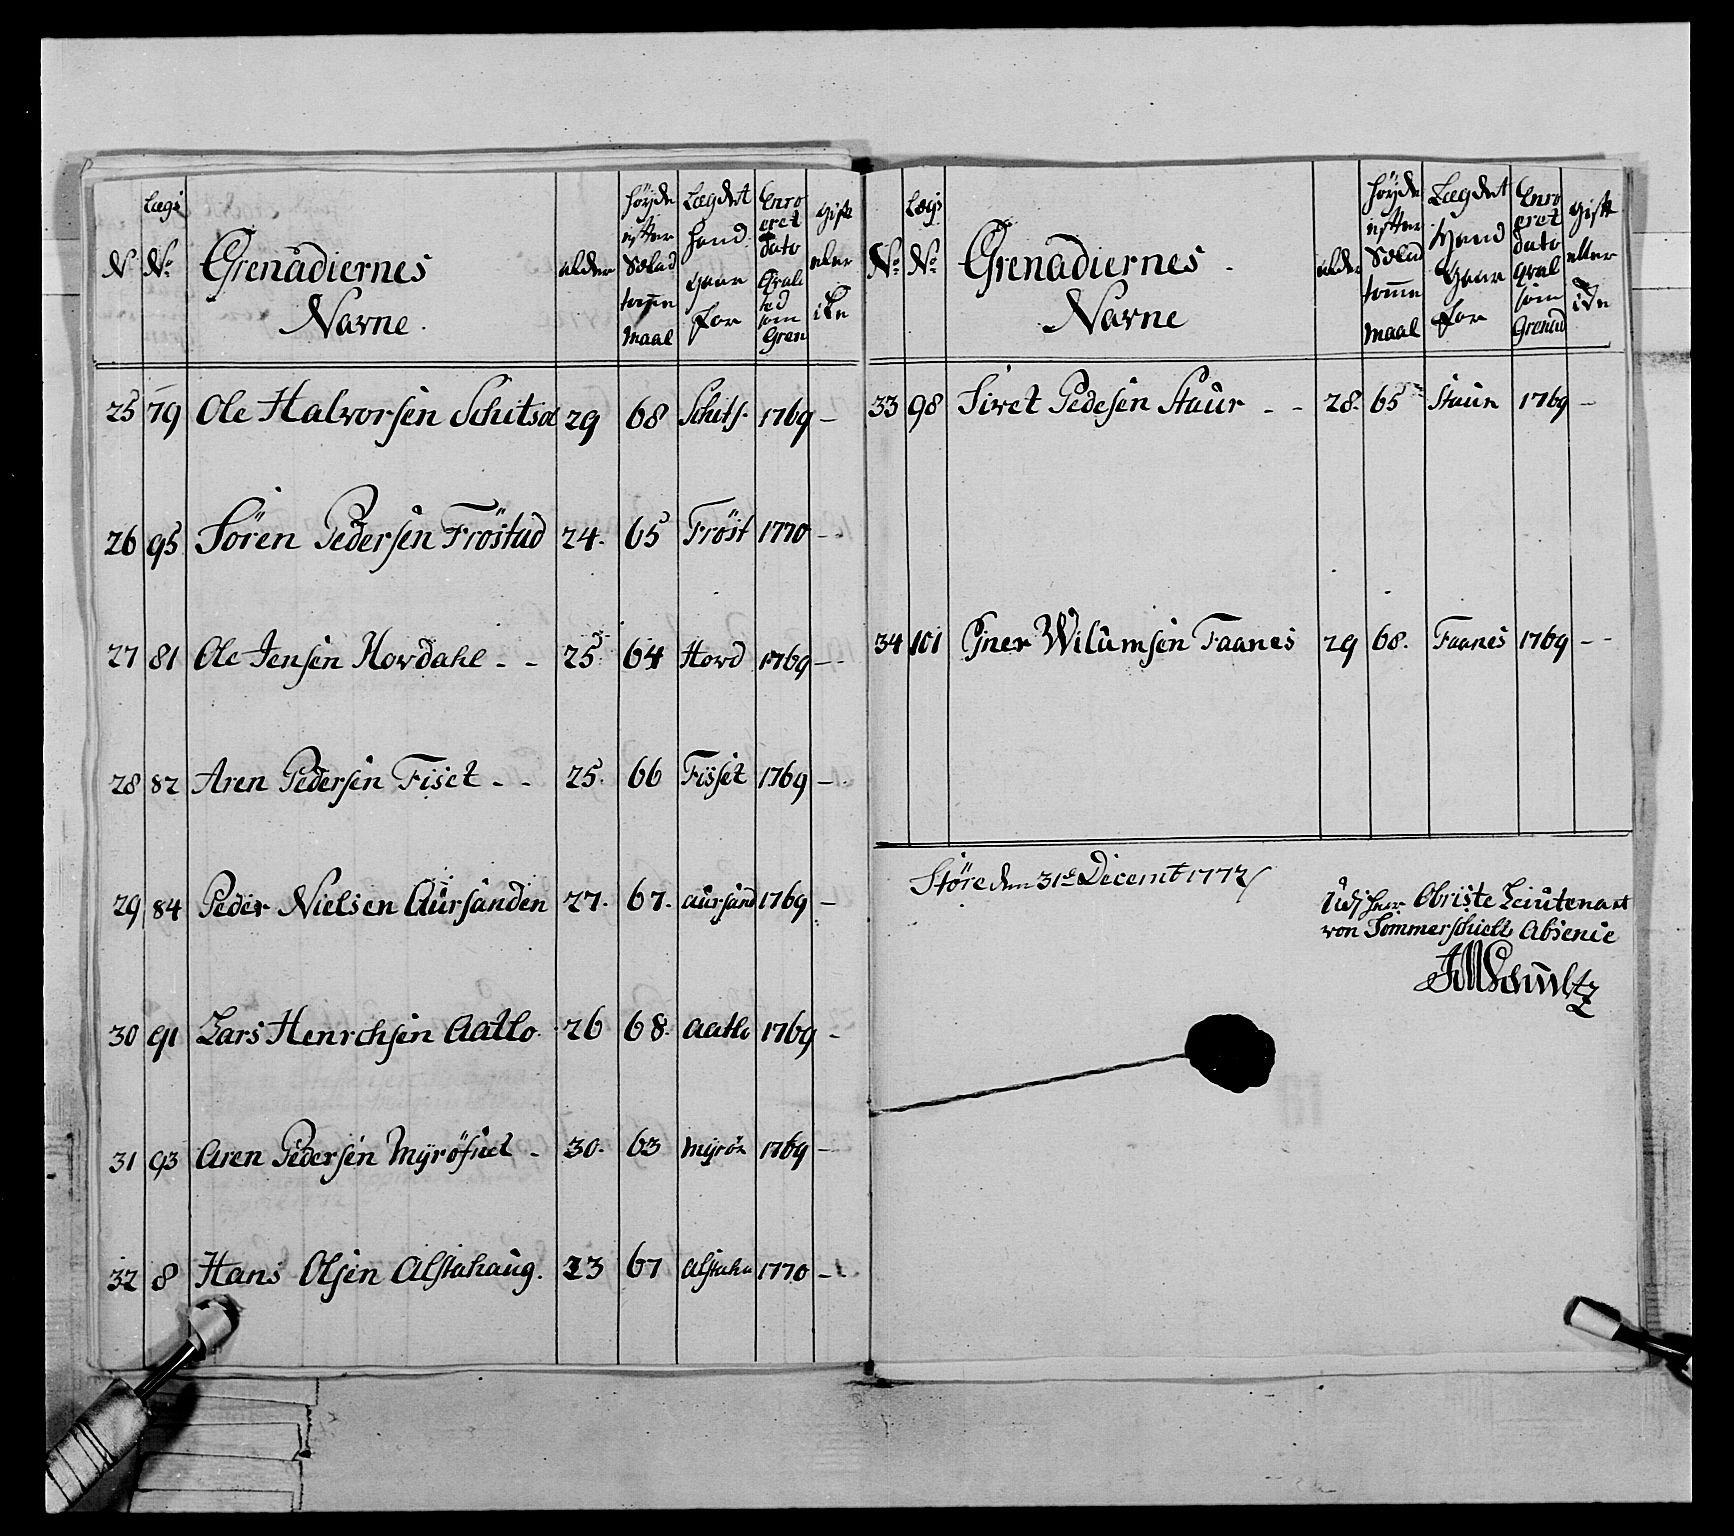 Lægs
N No Grenadiernes Navne. alder Høyde efter Solad tome maal Lægdet hand gaar for Enro eret dato Qvali sed som Gren gift eler ike
25 79 Ole Halvorsen Schitsa 29 68 Schits. 1769 –
26 95 Sören Pedersen Fröstad 24. 65 Fröst 1770 –
27 81 Ole Jensen Hovdahl - - 25. 64 Hovd 1769 – -
28 82 Aren Pedersen Fiset - - 25. 66 Fisset 1769 –
29 84 Peder Nielsen Aursanden 27. 67. aursand 1769 –
30 91 Lars Henrchsen Aatlo. 26 68. aatlo 1769 -
31 93 Aren Pedersen Myrösuet - 30. 63 Myrös 1769 –
32 8 Hans Olsen Alstahaug. 23 67 Alstaha 1770 –
Lægs
No No Grenadiernes Navne alder Høyde efter Solad tome maal Lægdet Hand Gaar for Enro eret dato qval som Grenad gift eller ike
33 98 Sivet Pedesen Staur - - 28. 65 Staur 1769 –
34 101 Einer Wilumsen Faanes 29 68. Faanes 1769 - -
Störe den 31te Decembt 1772
Udj herr Obriste Leiutenant
von Sommerschielt Absenie